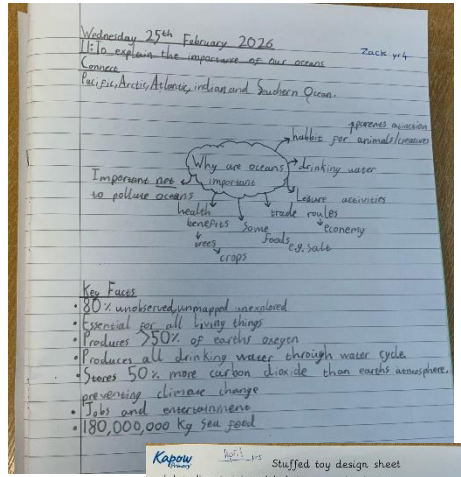 Wednesday 25th February 2026
Zack yr4
L.I: To explain the importance of our oceans
Connect
Pacific, Arctic, Atlantic, indian and Southern Ocean.
↑prevents extinction
habbit for animals/creatures
Why are oceans important
drinking water
Important not to pollute oceans
Leisure activities
health benefits
trees
crops
Some foods
e.g. Salt
trade routes
economy
Key Facts
• 80% unobserved, unmapped unexplored
• Essential for all living things
• Produces >50% of earths oxegen
• Produces all drinking water through water cycle
• Stores 50% more carbon dioxide than earths atmosphere,
preventing climate change
• Jobs and entertainment
• 180,000,000 Kg Sea food
Kapow
Primary
Stuffed toy design sheet